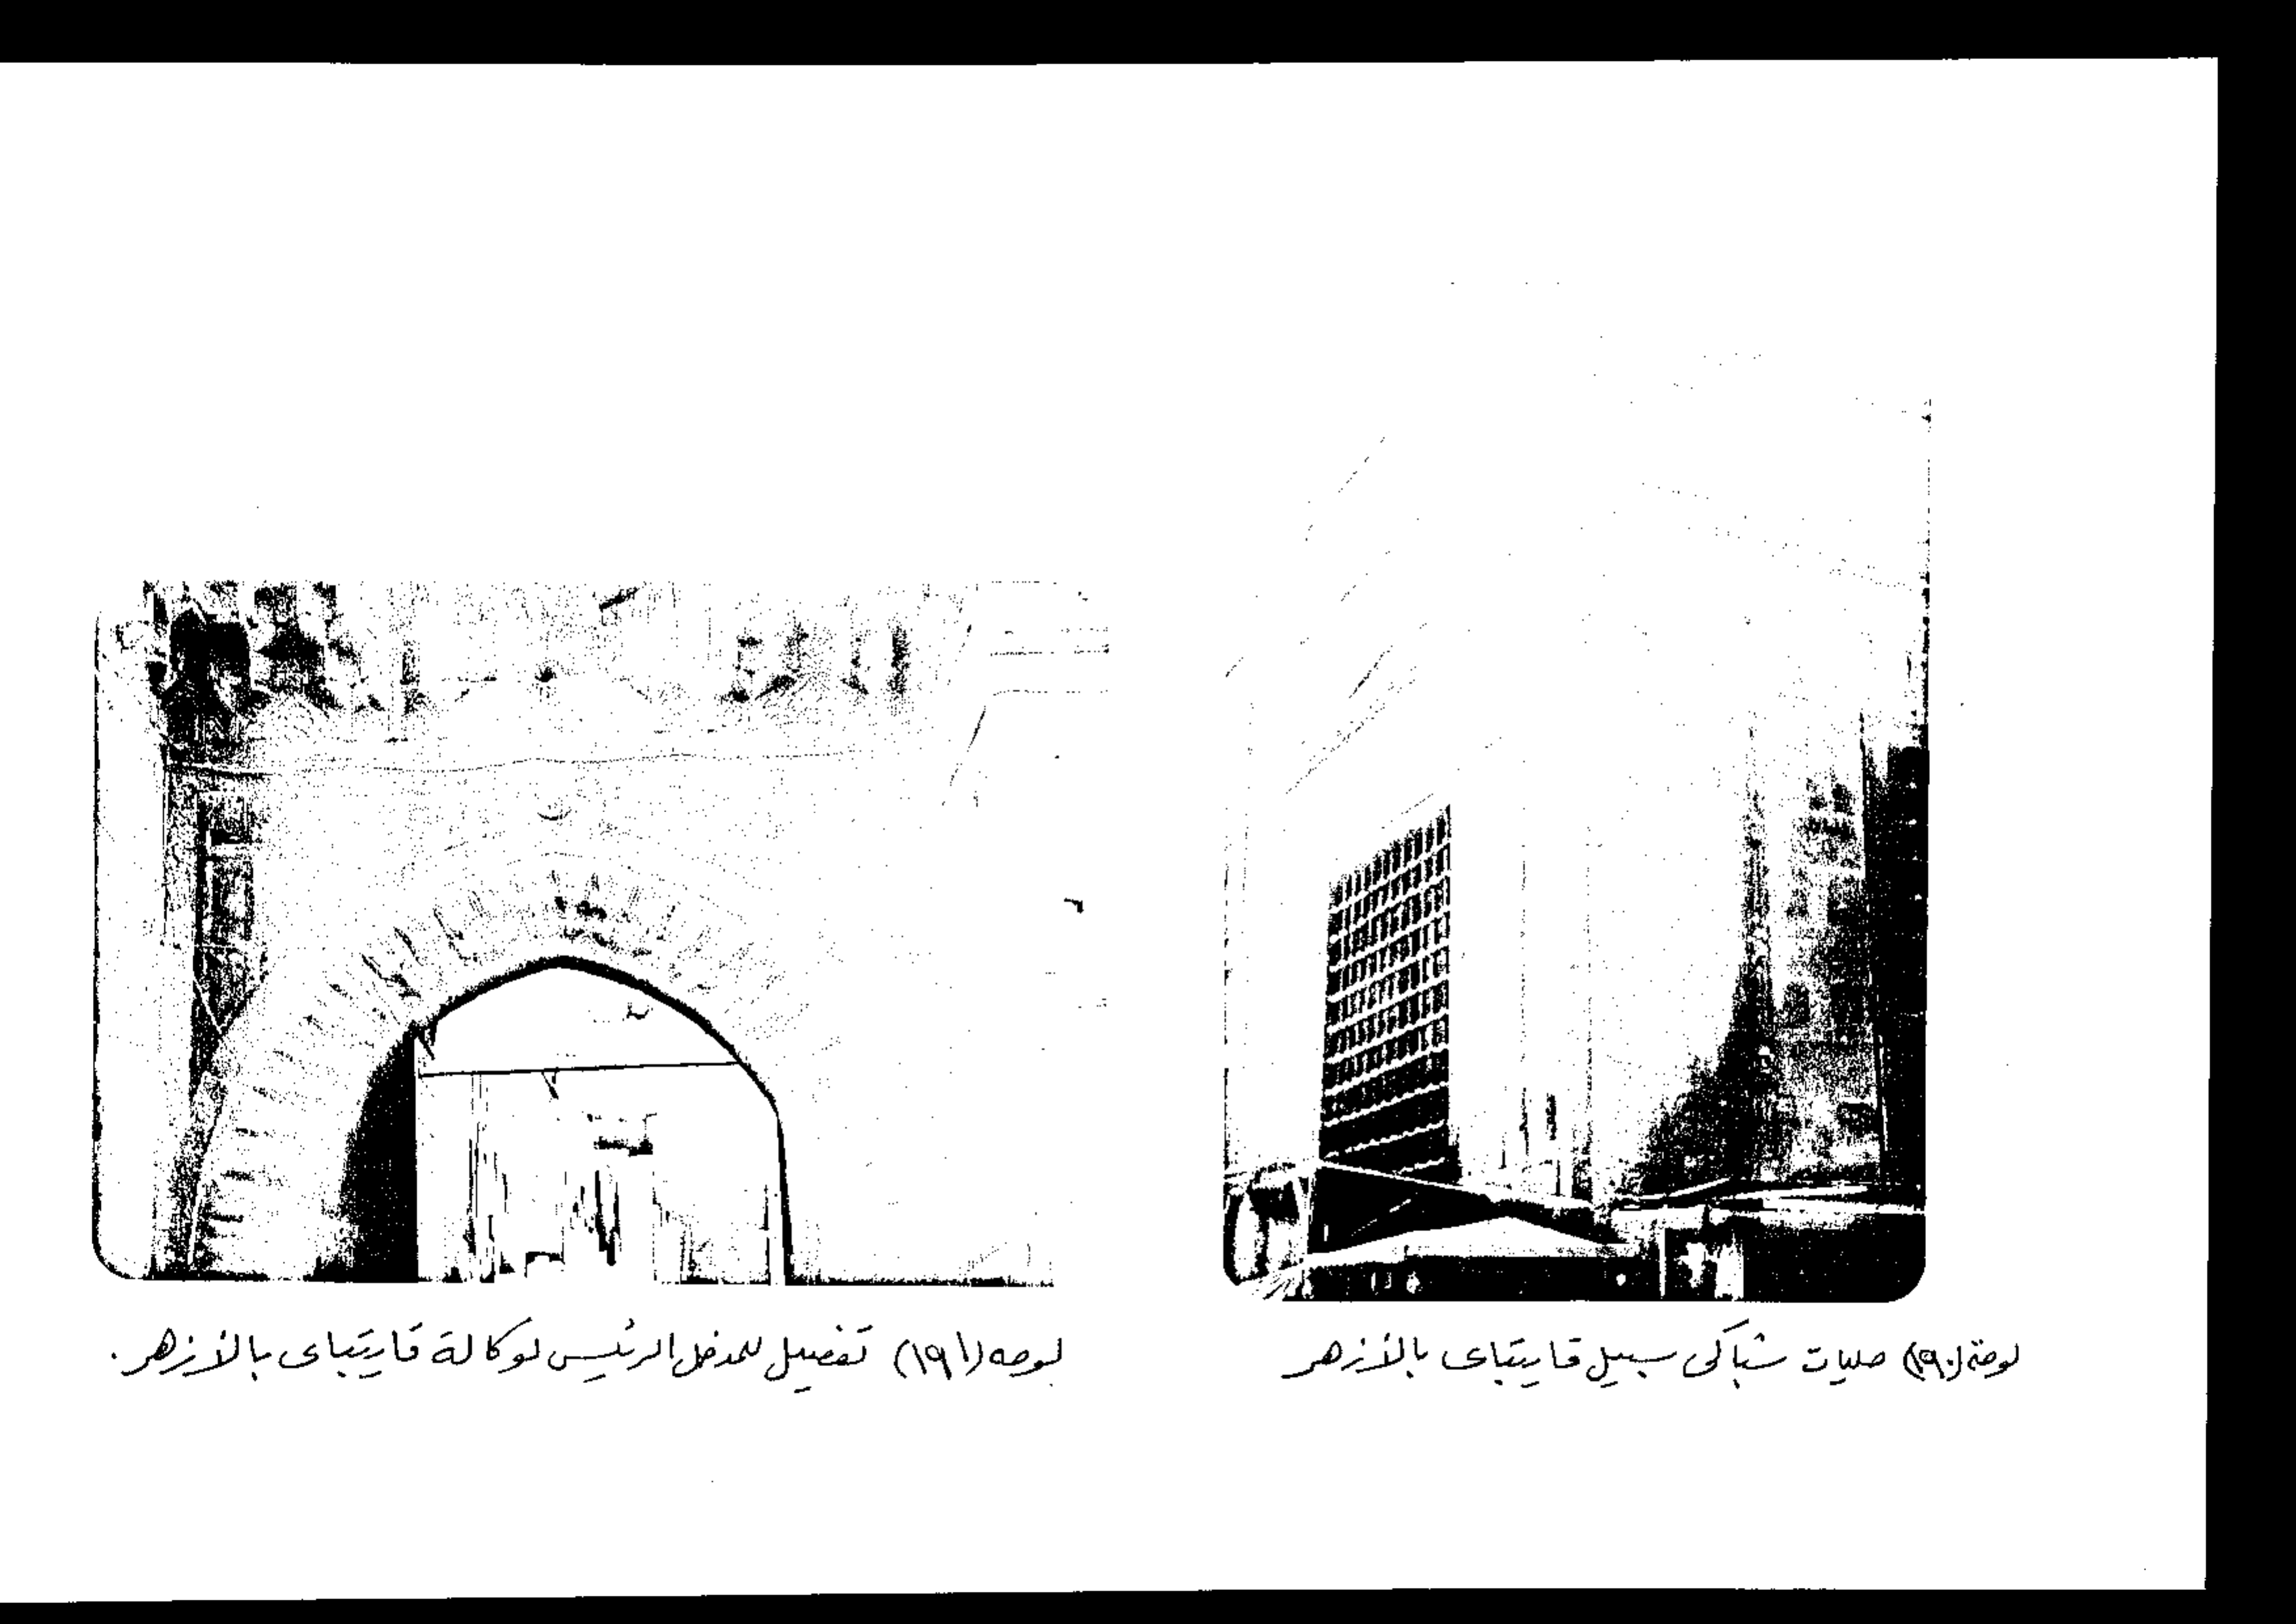 لوحة (١٩٠) حليات شباكى سبيل قايتباى بالأزهر
لوحه (١٩١) تفصيل للمدخل الرئيس لوكالة قايتباى بالأزهر.